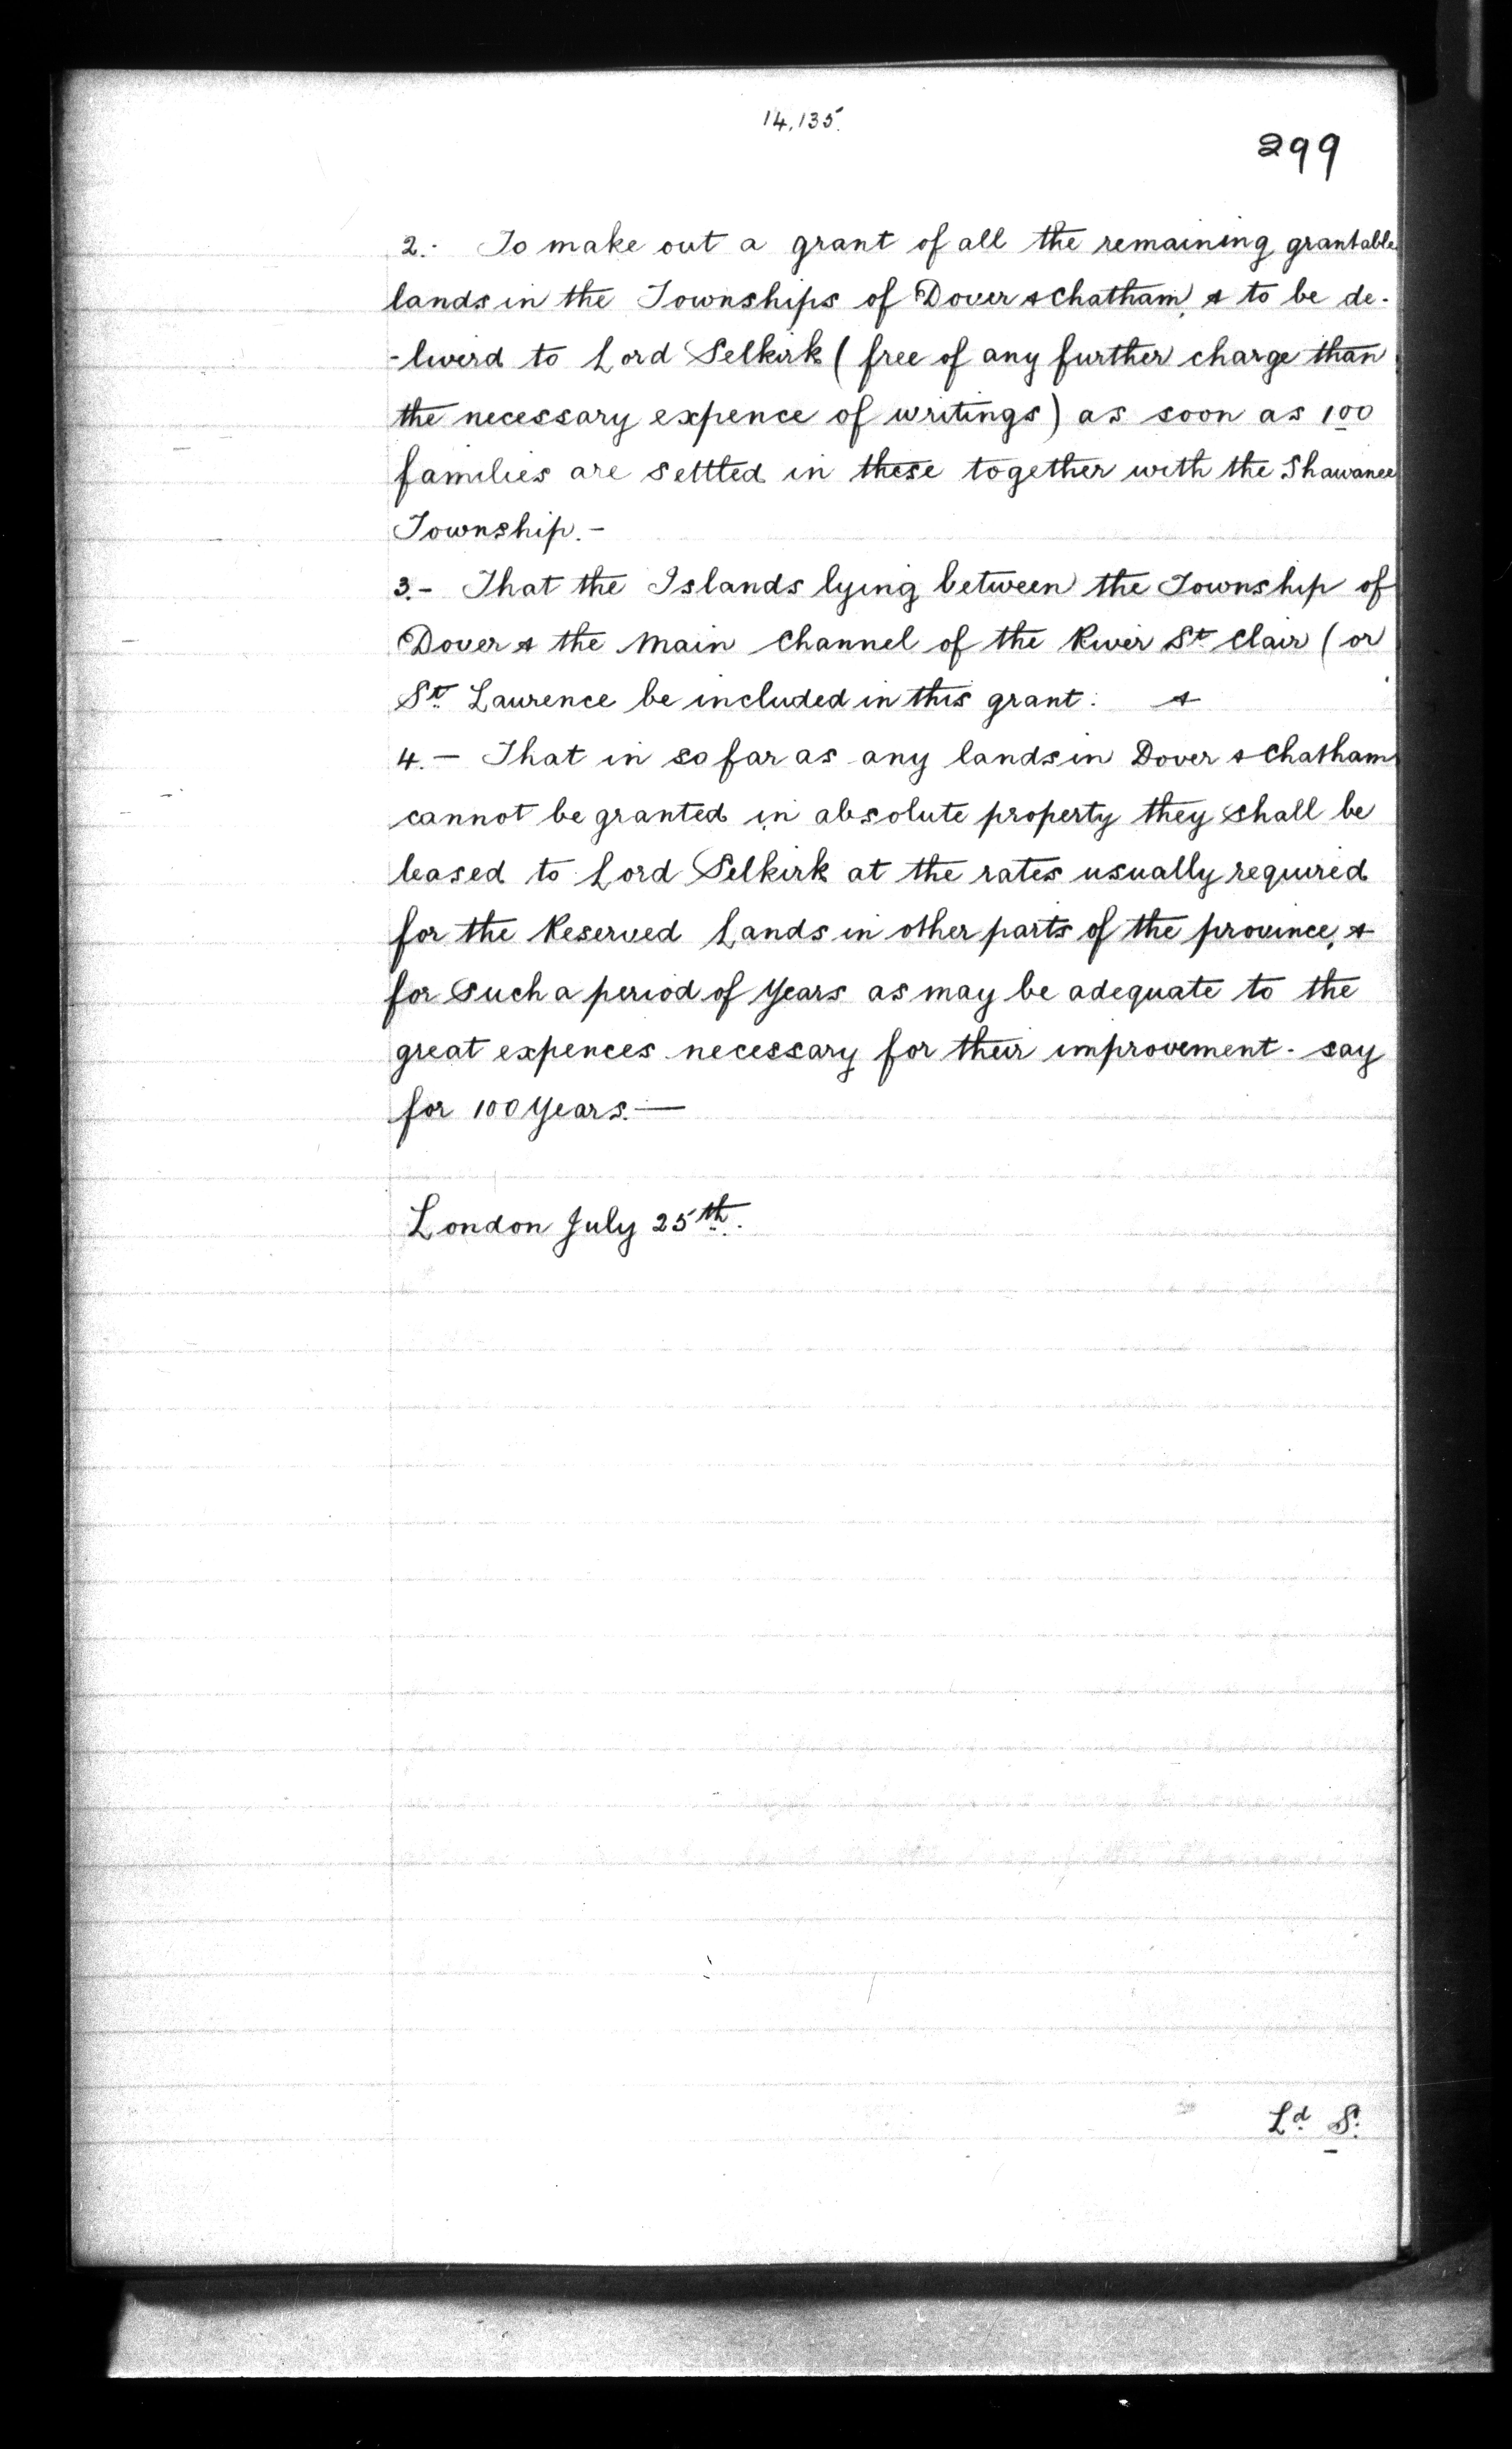 14,135.
299
2. To make out a grant of all the remaining grantable
lands in the Townships of Dover & Chatham, & to be de-
-liverd to Lord Selkirk ( free of any further charge than
the necessary expence of writings) as soon as 100
families are settled in these together with the Shawanee
Township. -
3. - That the Islands lying between the Township of
Dover & the Main Channel of the River St Clair ( or
St Laurence be included in this grant : &
4. - That in so far as any lands in Dover & Chatham
cannot be granted in absolute property they shall be
leased to Lord Selkirk at the rates usually required
for the Reserved Lands in other parts of the province, &
for such a period of Years as may be adequate to the
great expences necessary for their improvement - say
for 100 Years. —
London July 25th.
Ld S.